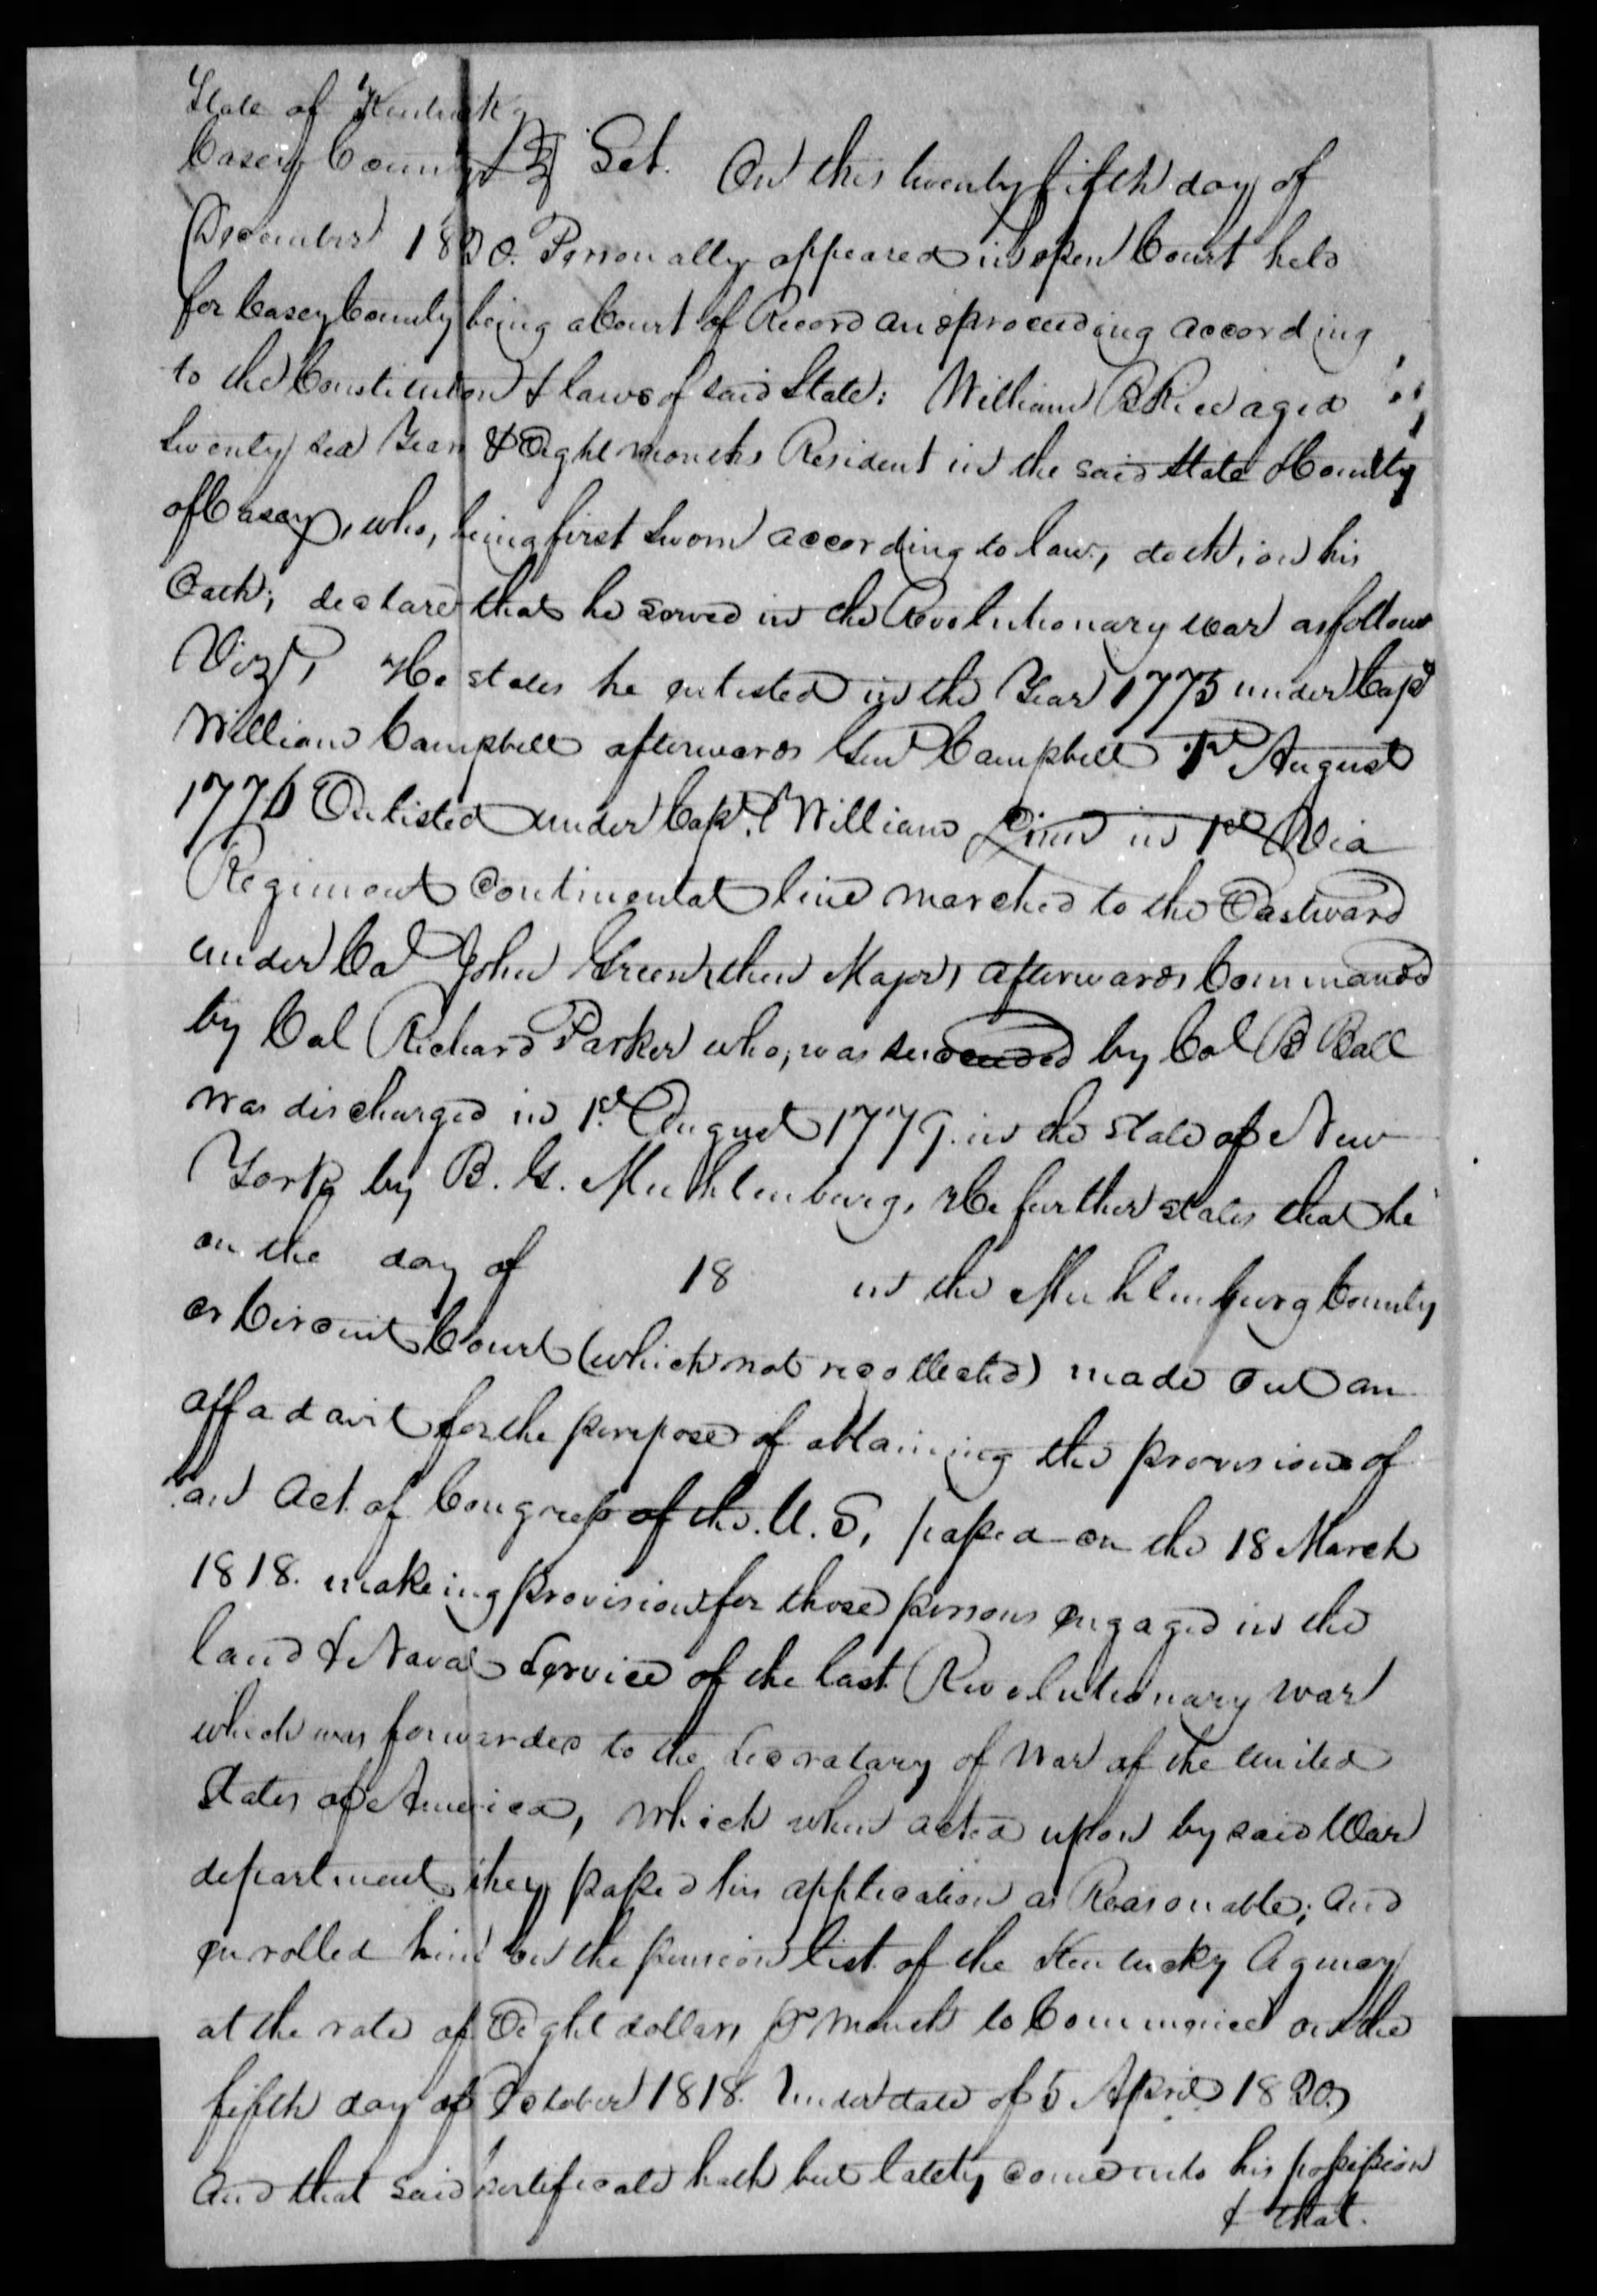 State of Kentucky
Casey County Sct. On this twenty fifth day of
December 1820. Personally appeared in open Court held
for Casey County being a Court of Record and proceeding according
to the Constitution & laws of said State: William B Rice aged
Years & Eight months Resident in the said State & County
of Casey, who, being first sworn according to law, doth, on his
Oath, declare that he served in the Revolutionary war as follows
Vizt, He states he enlisted in the Year 1775 under Capt
William Campbell afterwards Genl Campbell 1st August
1776 Enlisted under Capt. William in 1st Via
Regiment Continental line marched to the Eastward
under Col John Green then Major, afterwards Commanded
by Col Richard Parker who, was succeeded by Col B Ball
was discharged in 1st. August 1779. in the State of New
York by B. G. Muhlenburg, He further states that he
on the day of 18 in the Muhlenburg County
or Circuit Court (which not recollected) made out an
affadavit for the purpose of obtaining the provisions of
an Act of Congress of the U. S, passed on the 18 March
1818. makeing provision for those persons engaged in the
land & Naval Service of the last Revolutionary war
which was forwarded to the Secratary of War of the United
States of America, which when acted upon by said War
department they passed his application as Reasonable; and
enrolled him on the pension list of the Kentucky Agency
at the rate of Eight dollars pr month to Commence on the
fifth day of October 1818. Under date of 5 April 1820.
And that said certificate hath but lately come into his possession
& that.